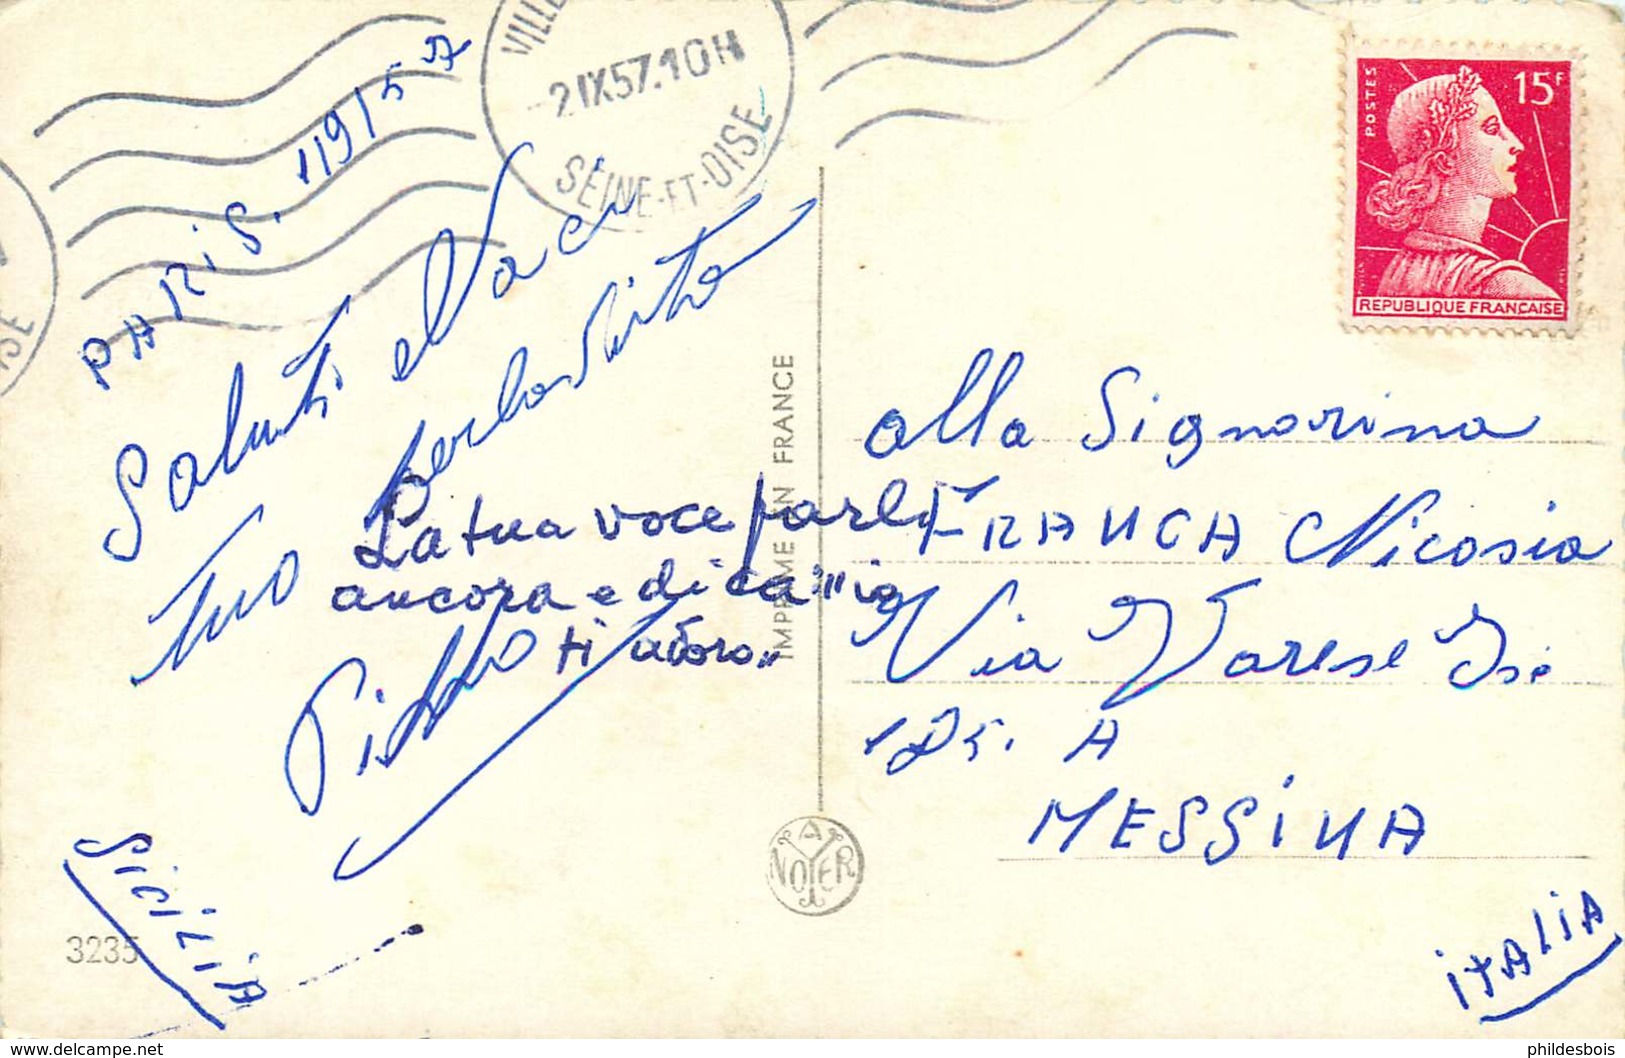 VILLE
2 IX 57.10H
SEINE-ET-OISE
ISE
PARiS. 1/9/57
Saluti e Baci
Tuo
Pippo
La tua voce parli
ancora e dica: "io
ti adoro"
SiCiLiA
3235
IMPRIME EN FRANCE
A
NOYER
POSTES
15F
REPUBLIQUE FRANÇAISE
alla Signorina
FRANCA Nicosia
Via Varese Is:
125. A
MESSiNA
iTALiA
phildesbois